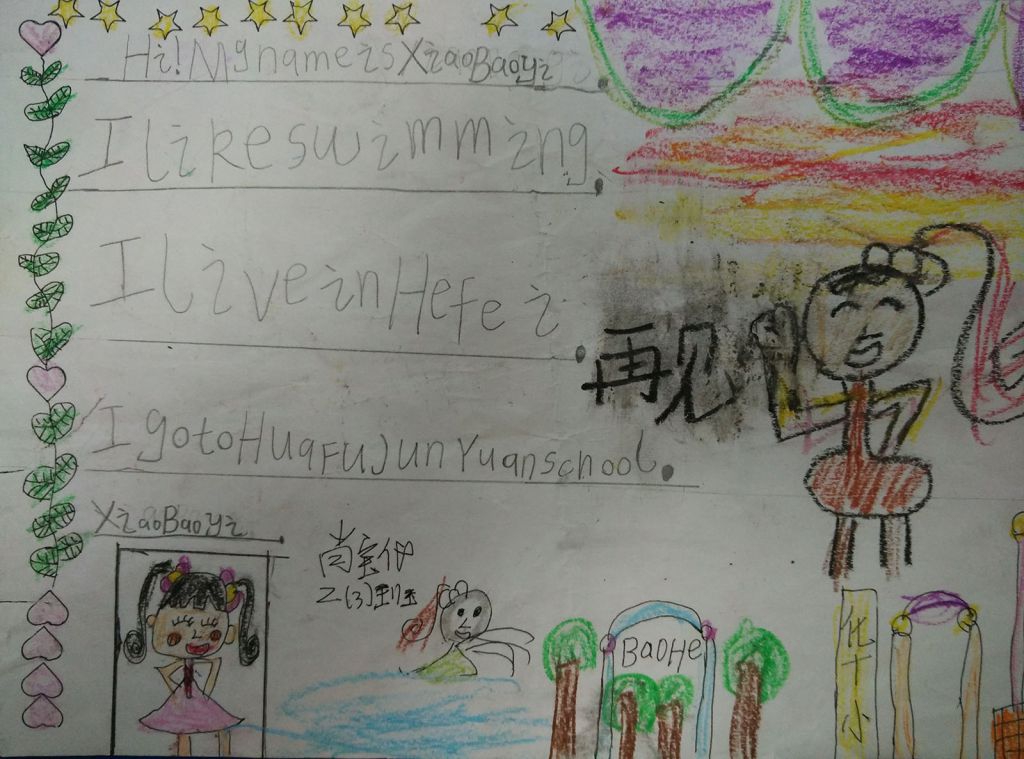 Hi! My name is XiaoBaoyi.
I like swimming.
I live in Hefei.
再见
I go to HuaFuJunYuan school.
XiaoBaoyi.
尚宝伊
二(3)
BaoHe
小